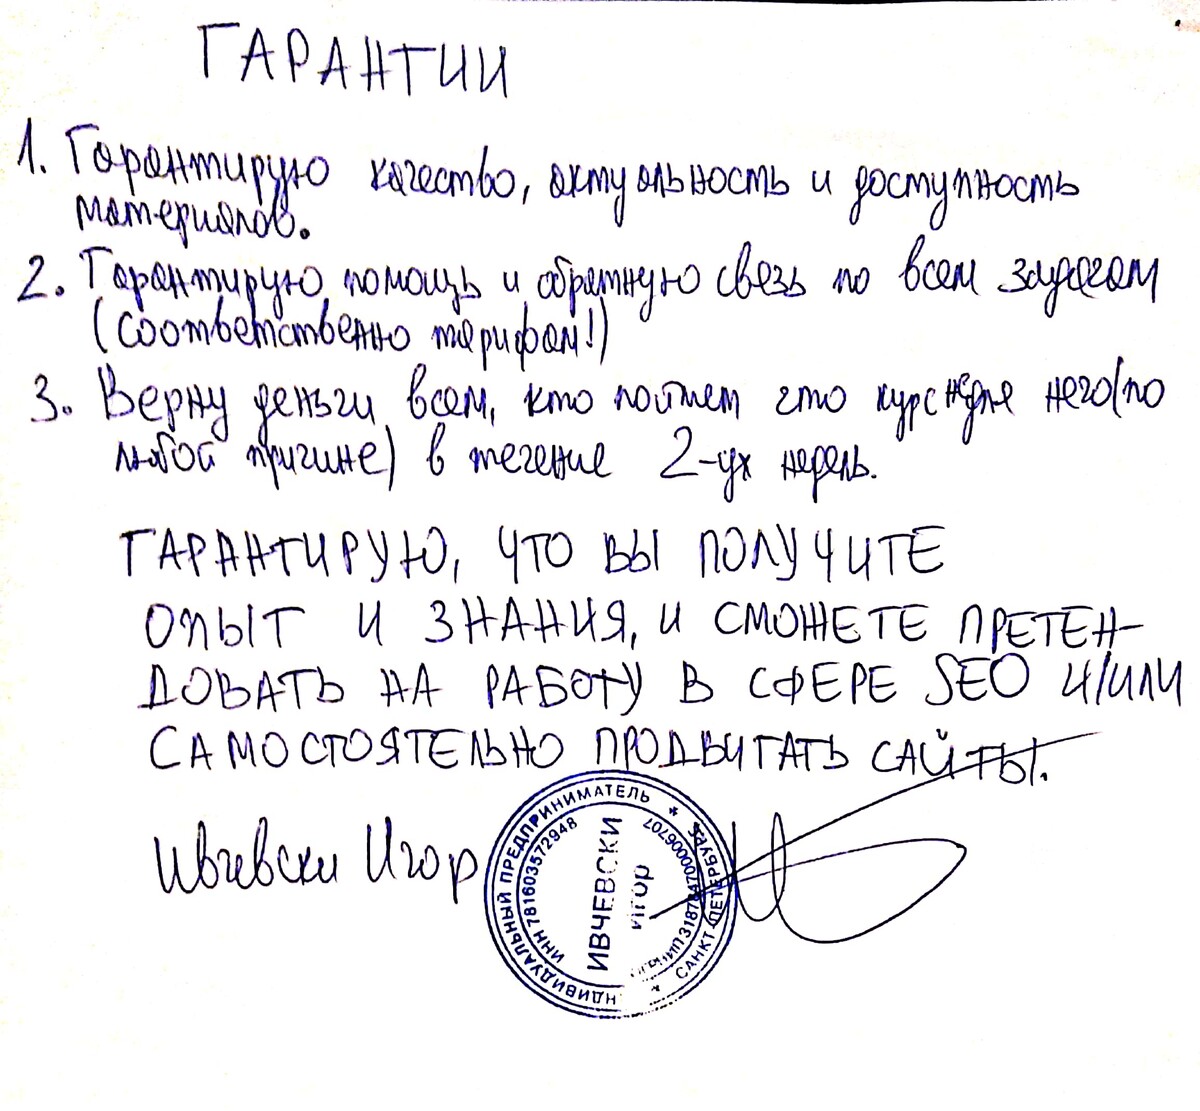 ГАРАНТИИ
1. Гарантирую качество, актуальность и доступность
материалов.
2. Гарантирую помощь и обратную связь по всем задачам
(соответственно тарифам!)
3. Верну деньги всем, кто поймет что курс не для него (по
любой причине) в течение 2-ух недель.
ГАРАНТИРУЮ, ЧТО ВЫ ПОЛУЧИТЕ
ОПЫТ И ЗНАНИЯ, И СМОЖЕТЕ ПРЕТЕН-
ДОВАТЬ НА РАБОТУ В СФЕРЕ SEO И/ИЛИ
САМОСТОЯТЕЛЬНО ПРОДВИГАТЬ САЙТЫ.
Ивчевски Игор
ИНДИВИДУАЛЬНЫЙ ПРЕДПРИНИМАТЕЛЬ * САНКТ-ПЕТЕРБУРГ *
ИНН 781603572948
ИВЧЕВСКИ
ИГОР